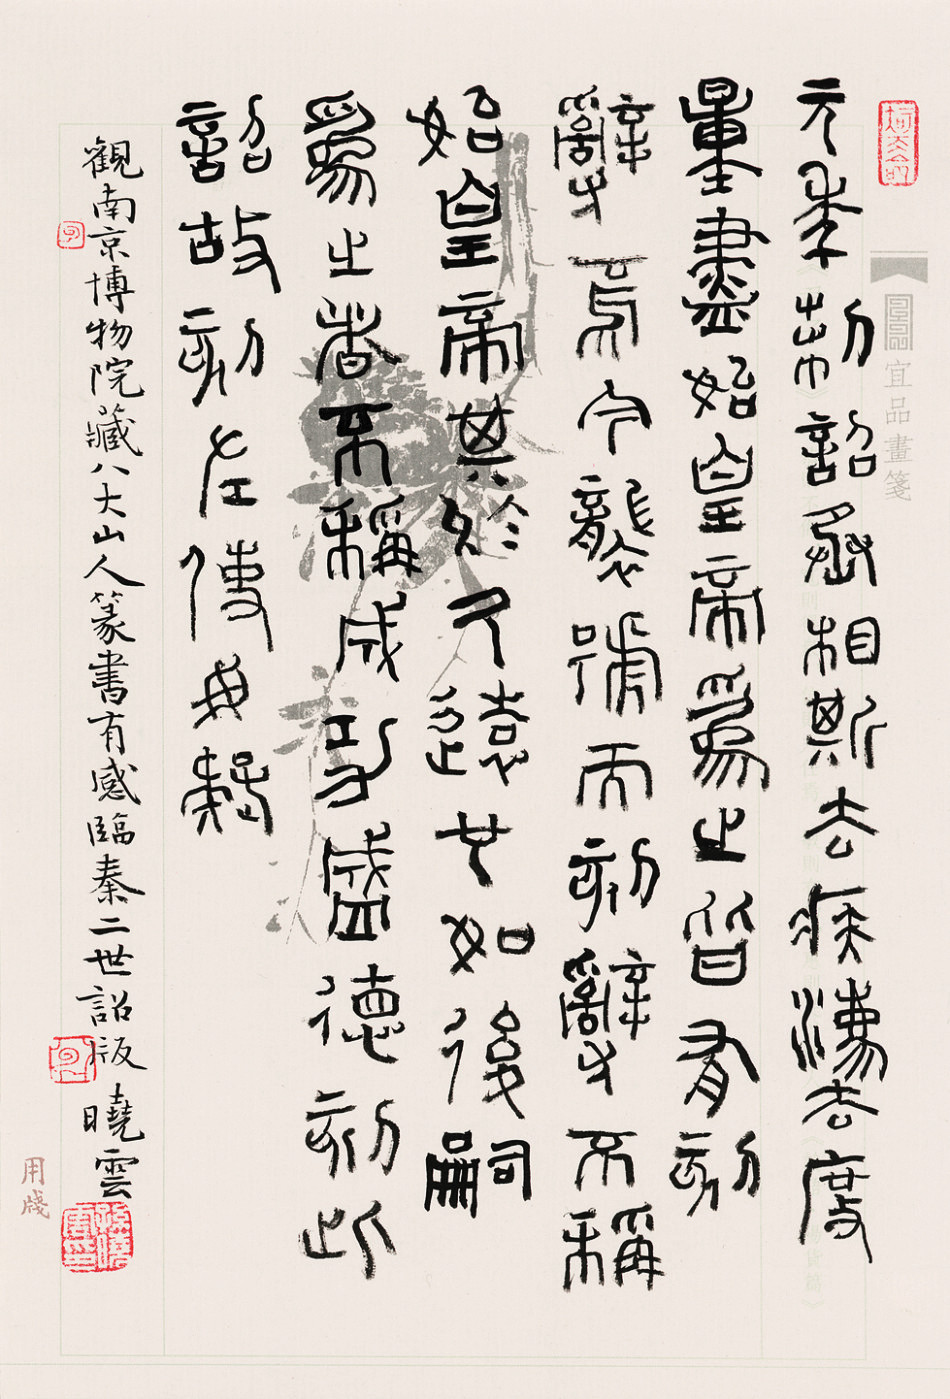 元年制詔丞相斯去疾灋度
量盡始皇帝爲之皆有刻
辭焉今襲號而刻辭不稱
始皇帝其於久遠也如後嗣
爲之者不稱成功盛德刻此
詔故刻左使毋疑
觀南京博物院藏八大山人篆書有感臨秦二世詔版
曉雲
宜品畫箋
用牋